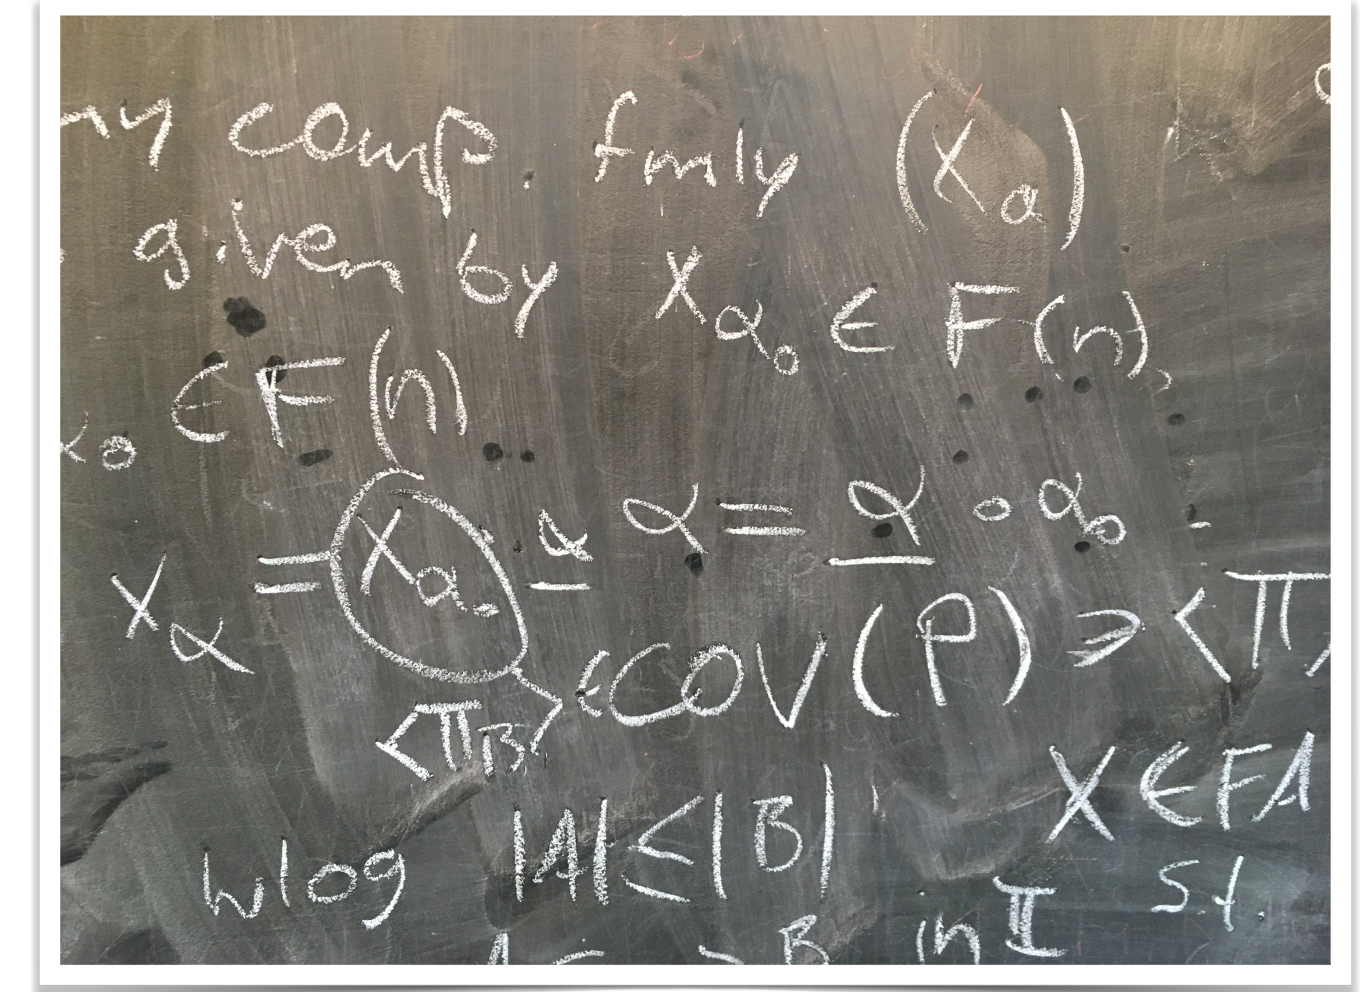 ny comp. fmly (x_α)
given by x_α₀ ∈ F(n),
x₀ ∈ F(n)
x_α = x_α₀ α α = α ∘ α₀
⟨π_B⟩ ∈ COV(P) ⇒ ⟨π
x ∈ FA
wlog |A| ≤ |B|
s.t.
B in II